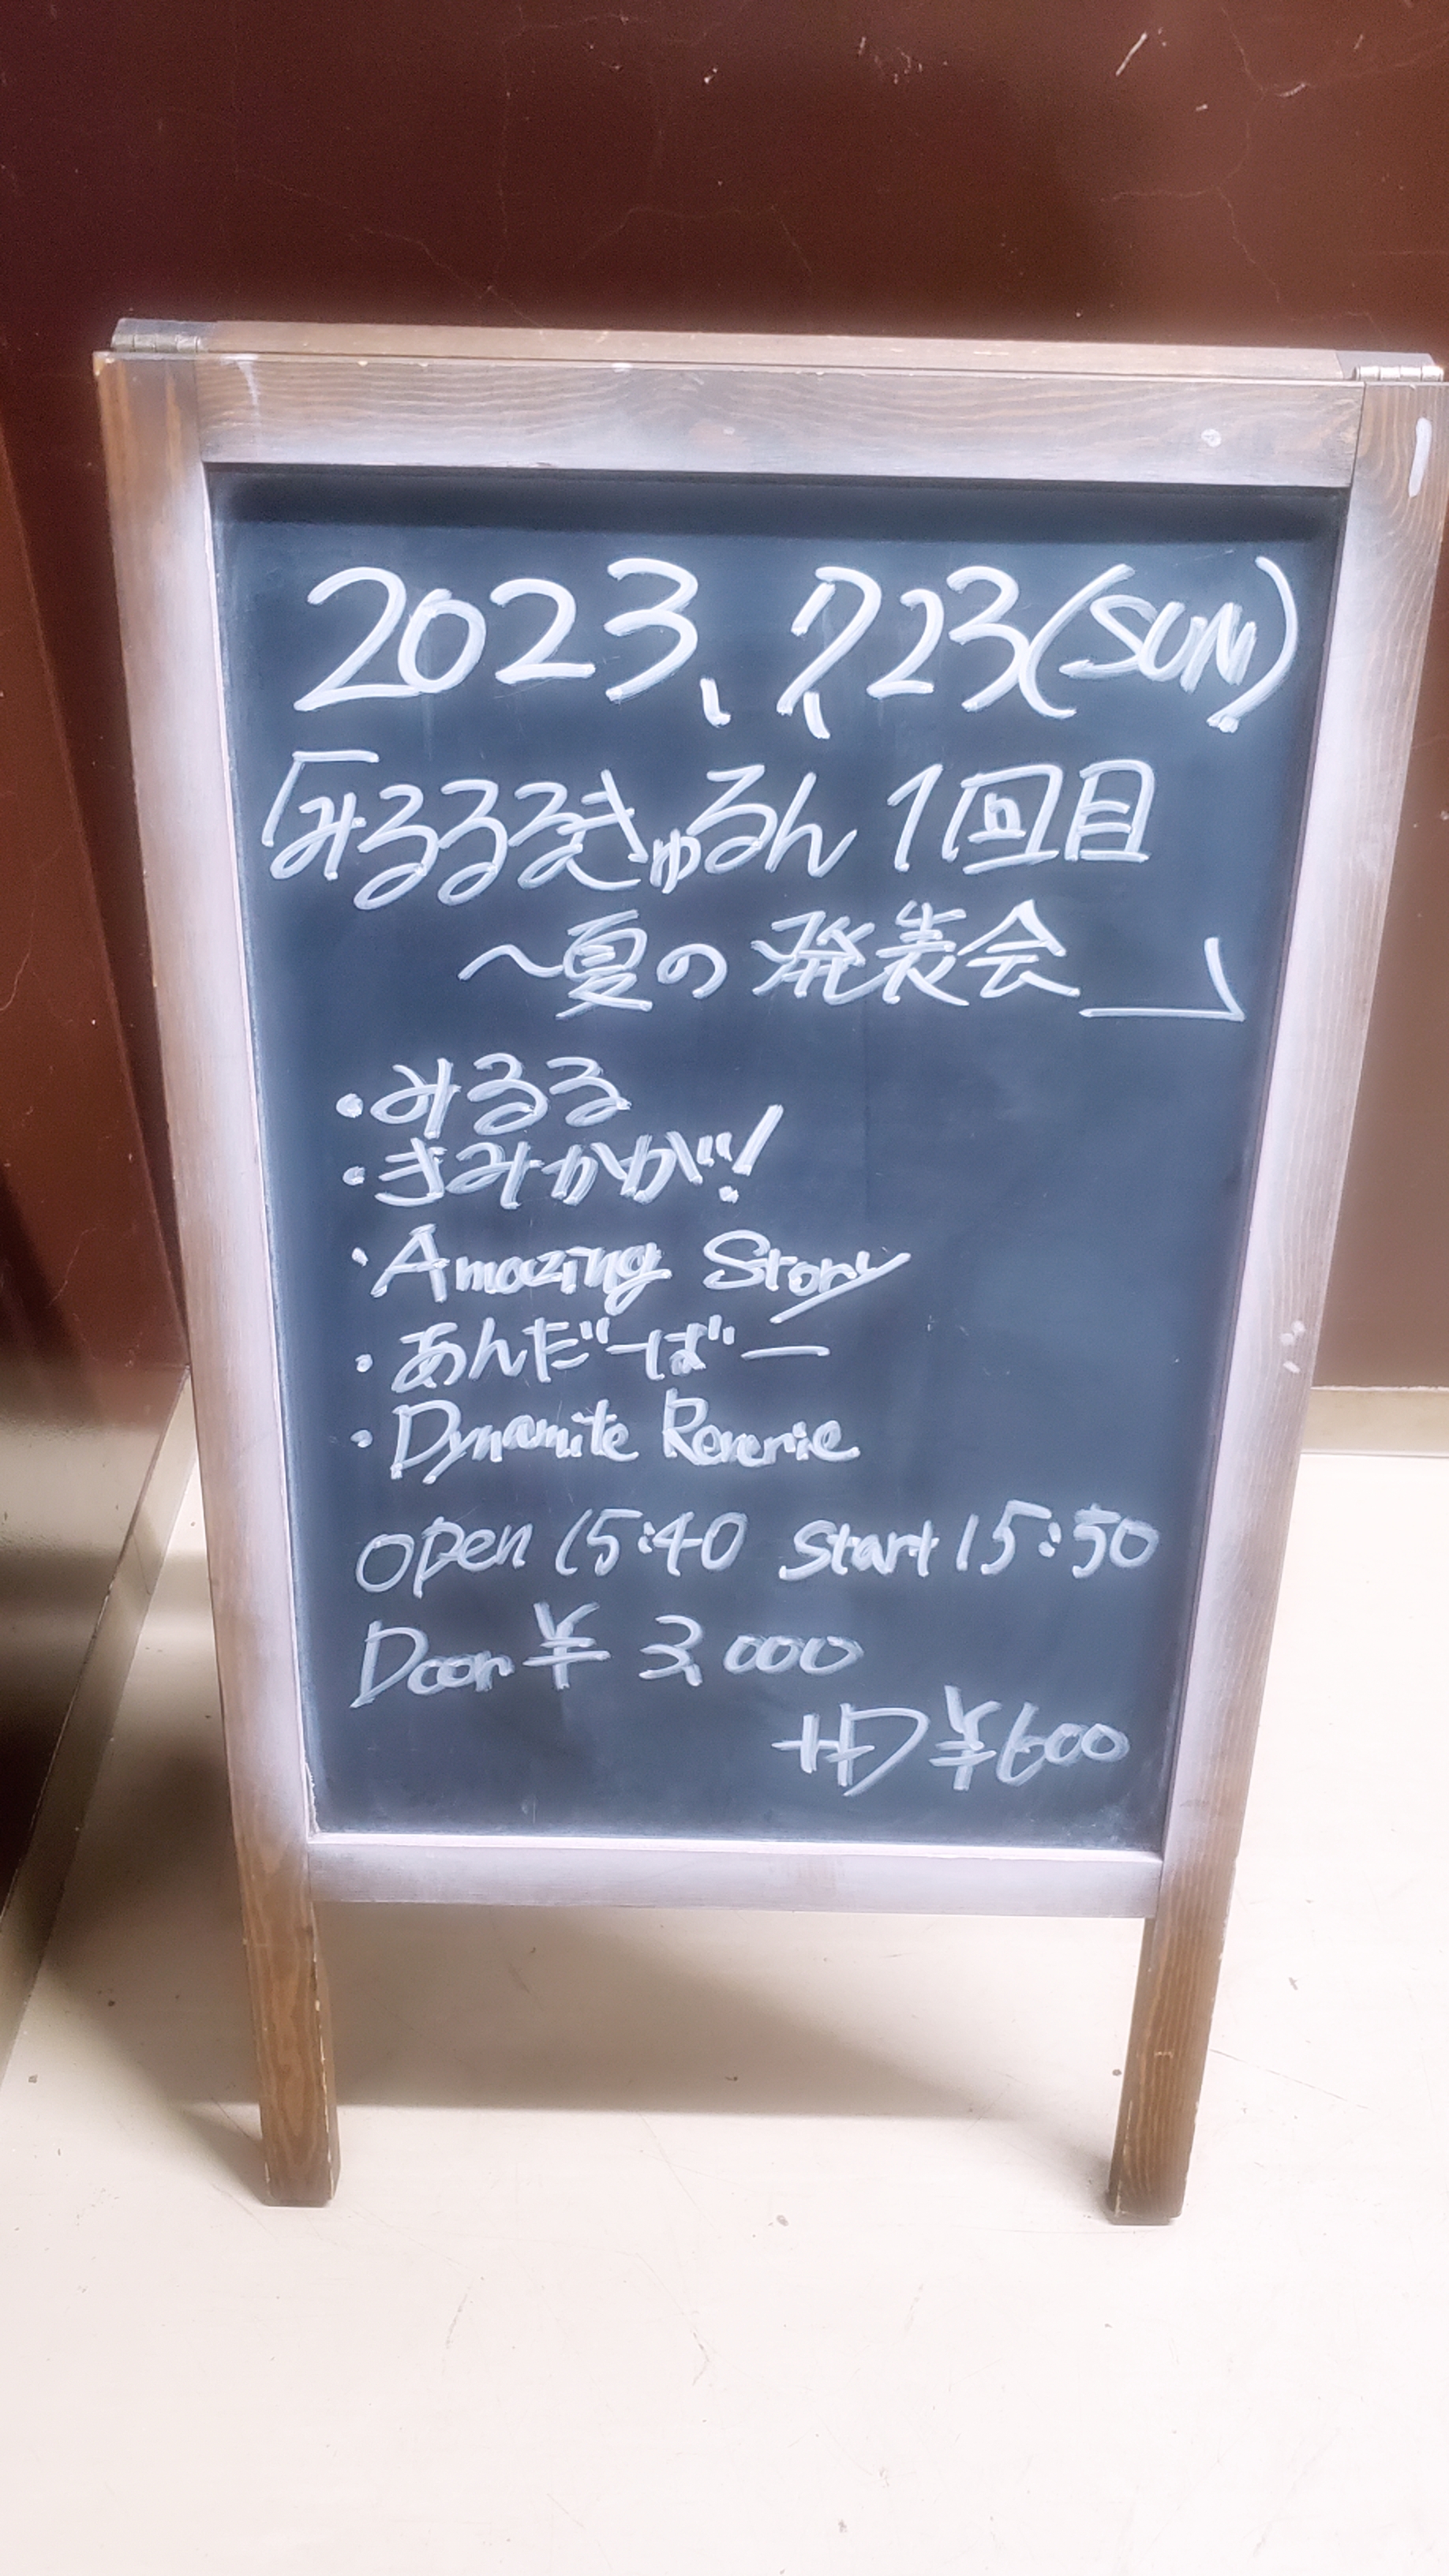 2023.7.23(SUN)
「みるるるきゅるん1回目
～夏の発表会」
・みるる
・きみかが!
・Amazing Story
・あんだーばー
・Dynamite Reverie
open 15:40 Start 15:50
Door ¥3,000
+D ¥600